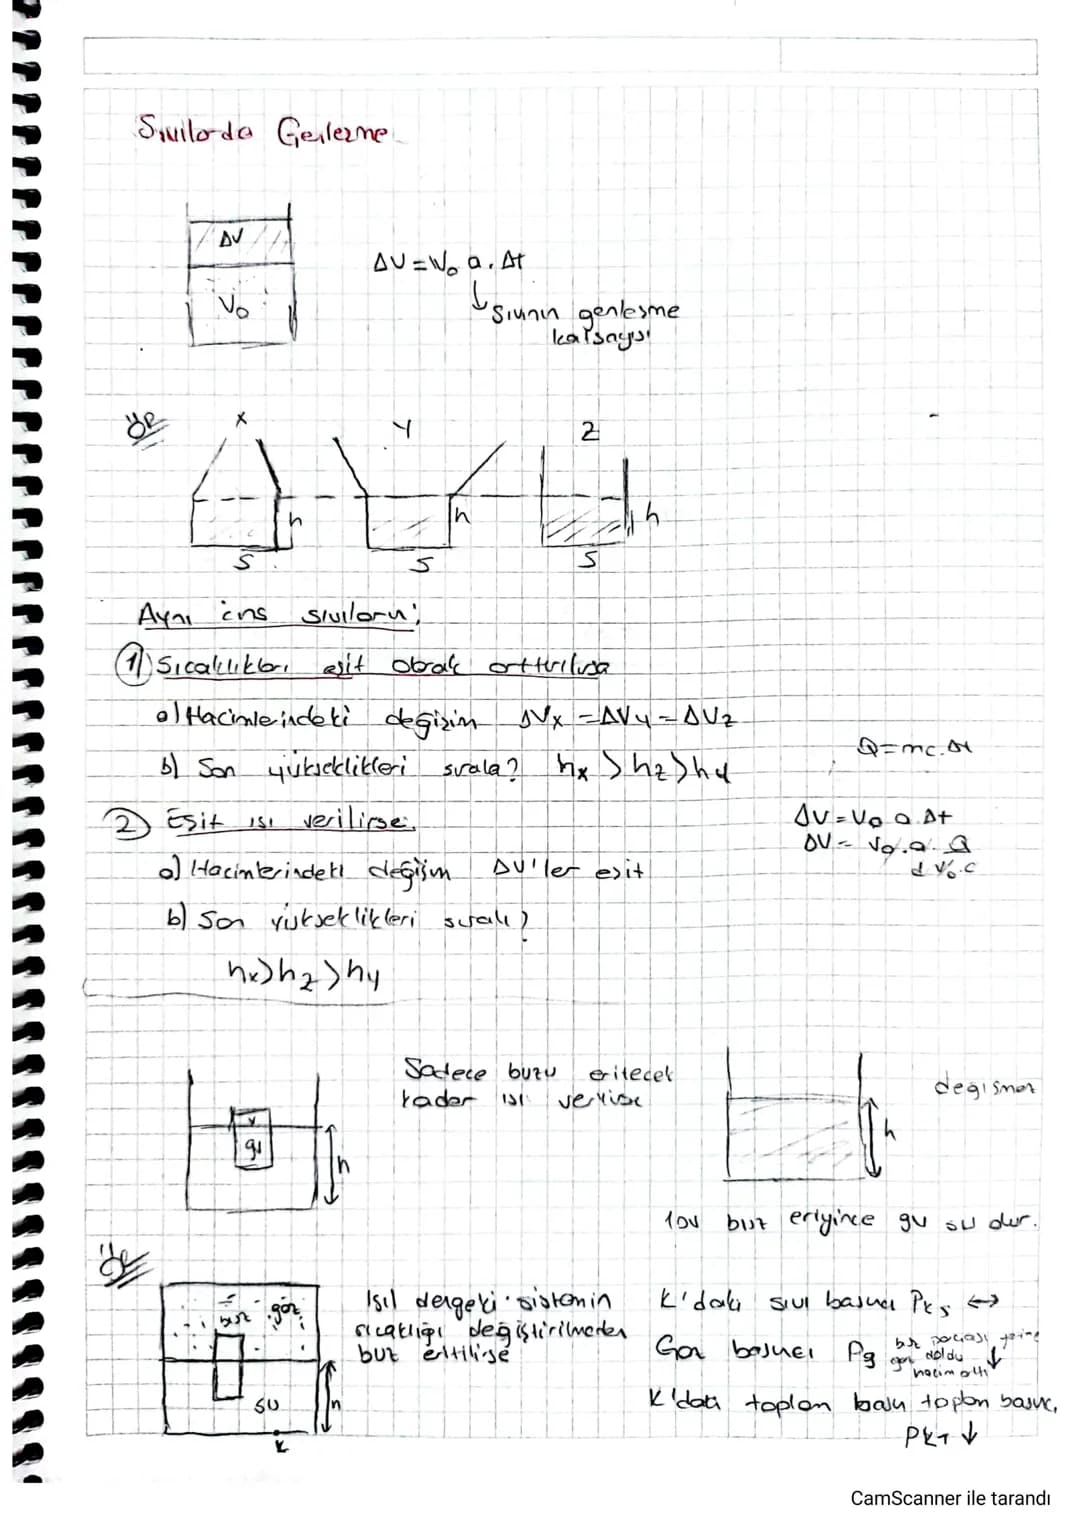 Sıvılarda Genleşme
ΔV
V₀
ΔV = V₀ a. Δt
Sıvının genleşme
katsayısı
ÖR
X Y Z
h h h
S S S
Aynı cins sıvıların;
1) Sıcaklıkları eşit olarak arttırılırsa
a) Hacimlerindeki değişim ΔVx = ΔVy = ΔVz
Q = mc. Δt
b) Son yükseklikleri sırala? hx > hz > hy
2) Eşit ısı verilirse.
ΔV = V₀ a Δt
ΔV = V₀.a. Q
d V₀.c
a) Hacimlerindeki değişim ΔV'ler eşit
b) Son yükseklikleri sırala?
hx > hz > hy
Sadece buzu eritecek
kadar ısı verilise
değişmez
v
9v
h
h
10v buz eriyince 9v su dur.
ÖR
buz gaz
su
h
K
Isıl dengeki sistemin
sıcaklığı değiştirilmeden
buz eritilirse
K'daki sıvı basıncı PKs ↔
Gaz basıncı Pg ↓
buz parçası yerine
gaz doldu
hacim arttı
K'daki toplam basın toplam basınç,
PKT ↓
CamScanner ile tarandı